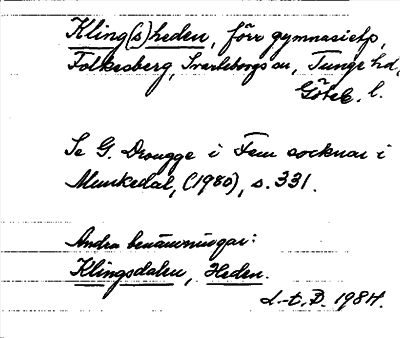 Kling(s)heden, förr gymnasielp,
Folkesberg, Svarteborgs sn, Tunge hd,
Göteb. l.
Se G. Drougge i Fem socknar i
Munkedal, (1980), s. 331.
Andra benämningar:
Klingsdalen, Heden.
L-t. D. 1984.